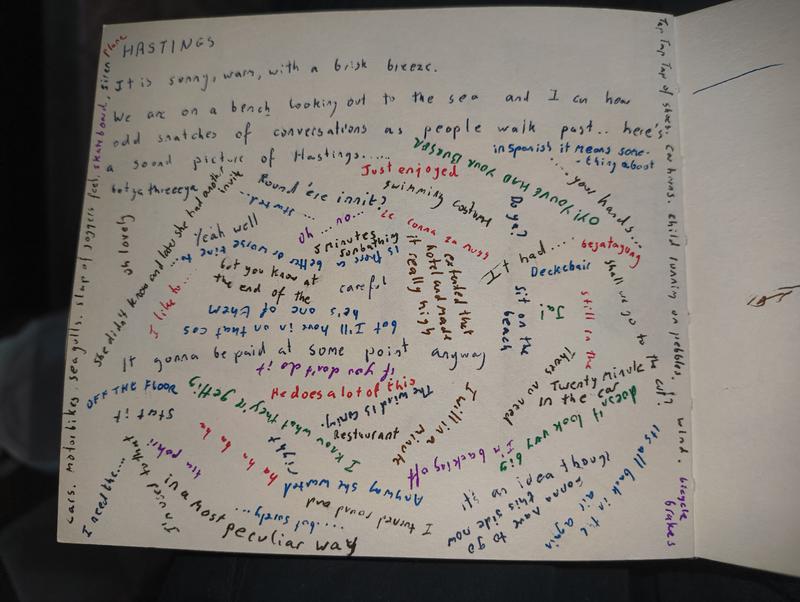 HASTINGS
It is sunny, warm, with a brisk breeze.
We are on a bench looking out to the sea and I can hear
odd snatches of conversations as people walk past.. here's
a sound picture of Hastings......
Siren Plane
cars. motorbikes. seagulls. slap of joggers feet, skateboard,
Tap Tap Tap of shoes. Car horns. child running on pebbles. wind.
bicycle brakes
OY! YOU'VE HAD YOUR BURGER
in spanish it means some-
-thing about
....your hands...
Just enjoyed
swimming costume
Round 'ere innit?
started...
She didn't know and later she had another
invite
oh lovely
Yeah well
oh... no...
5 minutes
sunbathing
is there a better or worse time to...
but you know at
the end of the
careful
I like to....
he's one of them
but I'll have on on that cos
extended that
hotel and made
it really high
Do ya?
It had....
Deckchair
sit on the
beach
Ja!
still in the
shall we go to the cafe?
It gonna be paid at some point anyway
if you don't do it
OFF THE FLOOR
I know what they're getting
He does a lot of this
The wind is coming.
Restaurant
I will in a
minute
I'm backing off
Theres no need
Twenty Minute
in the car
doesn't look very
big
is all back in the air again
gonna have to go
on this side now
ha ha ha ha
right
Anyway she wanted
I turned round and
.....but surely...
in a most
peculiar way
I need the....